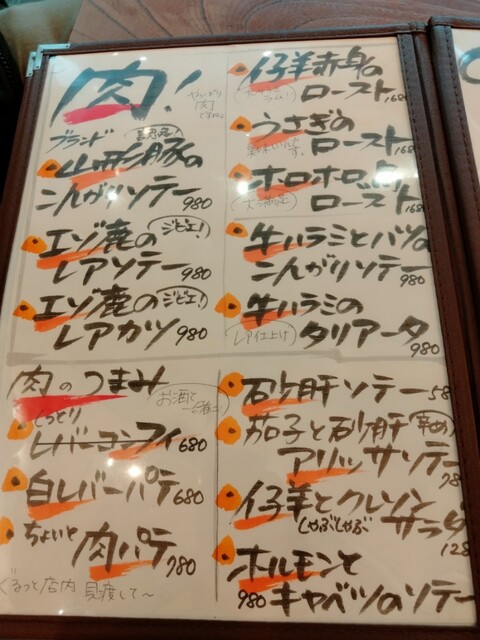 肉!
やっぱり
肉
ですね。
ブランド
山形豚の
こんがりソテー 980
エゾ鹿の ジビエ!
レアソテー 980
エゾ鹿の ジビエ!
レアカツ 980
仔羊赤身の
ロースト 168
うさぎの
ロースト 168
ホロホロ鳥
ロースト 168
牛ハラミとバツの
こんがりソテー 980
牛ハラミの
レア仕上げ タリアータ
980
肉のつまみ
お酒と
一緒に
しっとり
レバーコンフィ 680
白レバーパテ 680
ちょいと
肉パテ 780
ぐるっと店内 見渡して〜
砂肝ソテー 58
茄子と砂肝 辛め
アリッサソテー
78
仔羊とクレソン
しゃぶしゃぶ サラダ
128
ホルモンと
980 キャベツのソテー